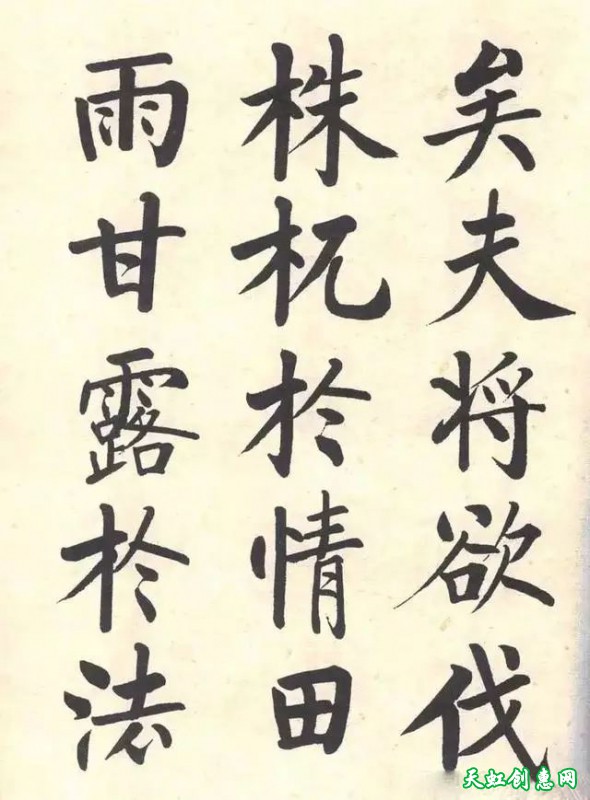 矣夫将欲伐
株杌於情田
雨甘露於法
天虹创意网